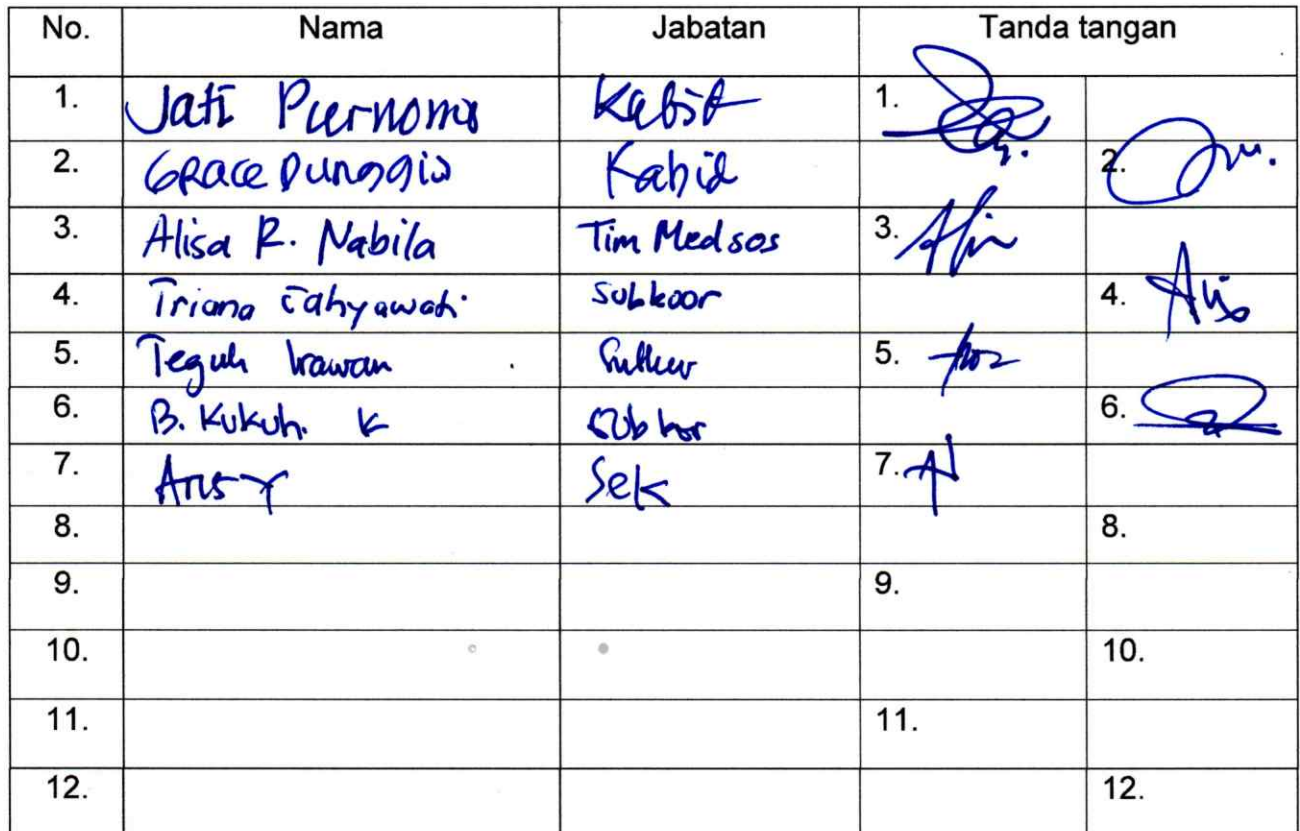 No. Nama Jabatan Tanda tangan
1. Jati Purnomo Kabid 1.
2. Grace Dunggio Kabid 2.
3. Alisa R. Nabila Tim Medsos 3.
4. Triana Cahyawati Subkoor 4.
5. Teguh Irawan 5.
6. B. Kukuh. K Subkor 6.
7. Sek 7.
8. 8.
9. 9.
10. 10.
11. 11.
12. 12.